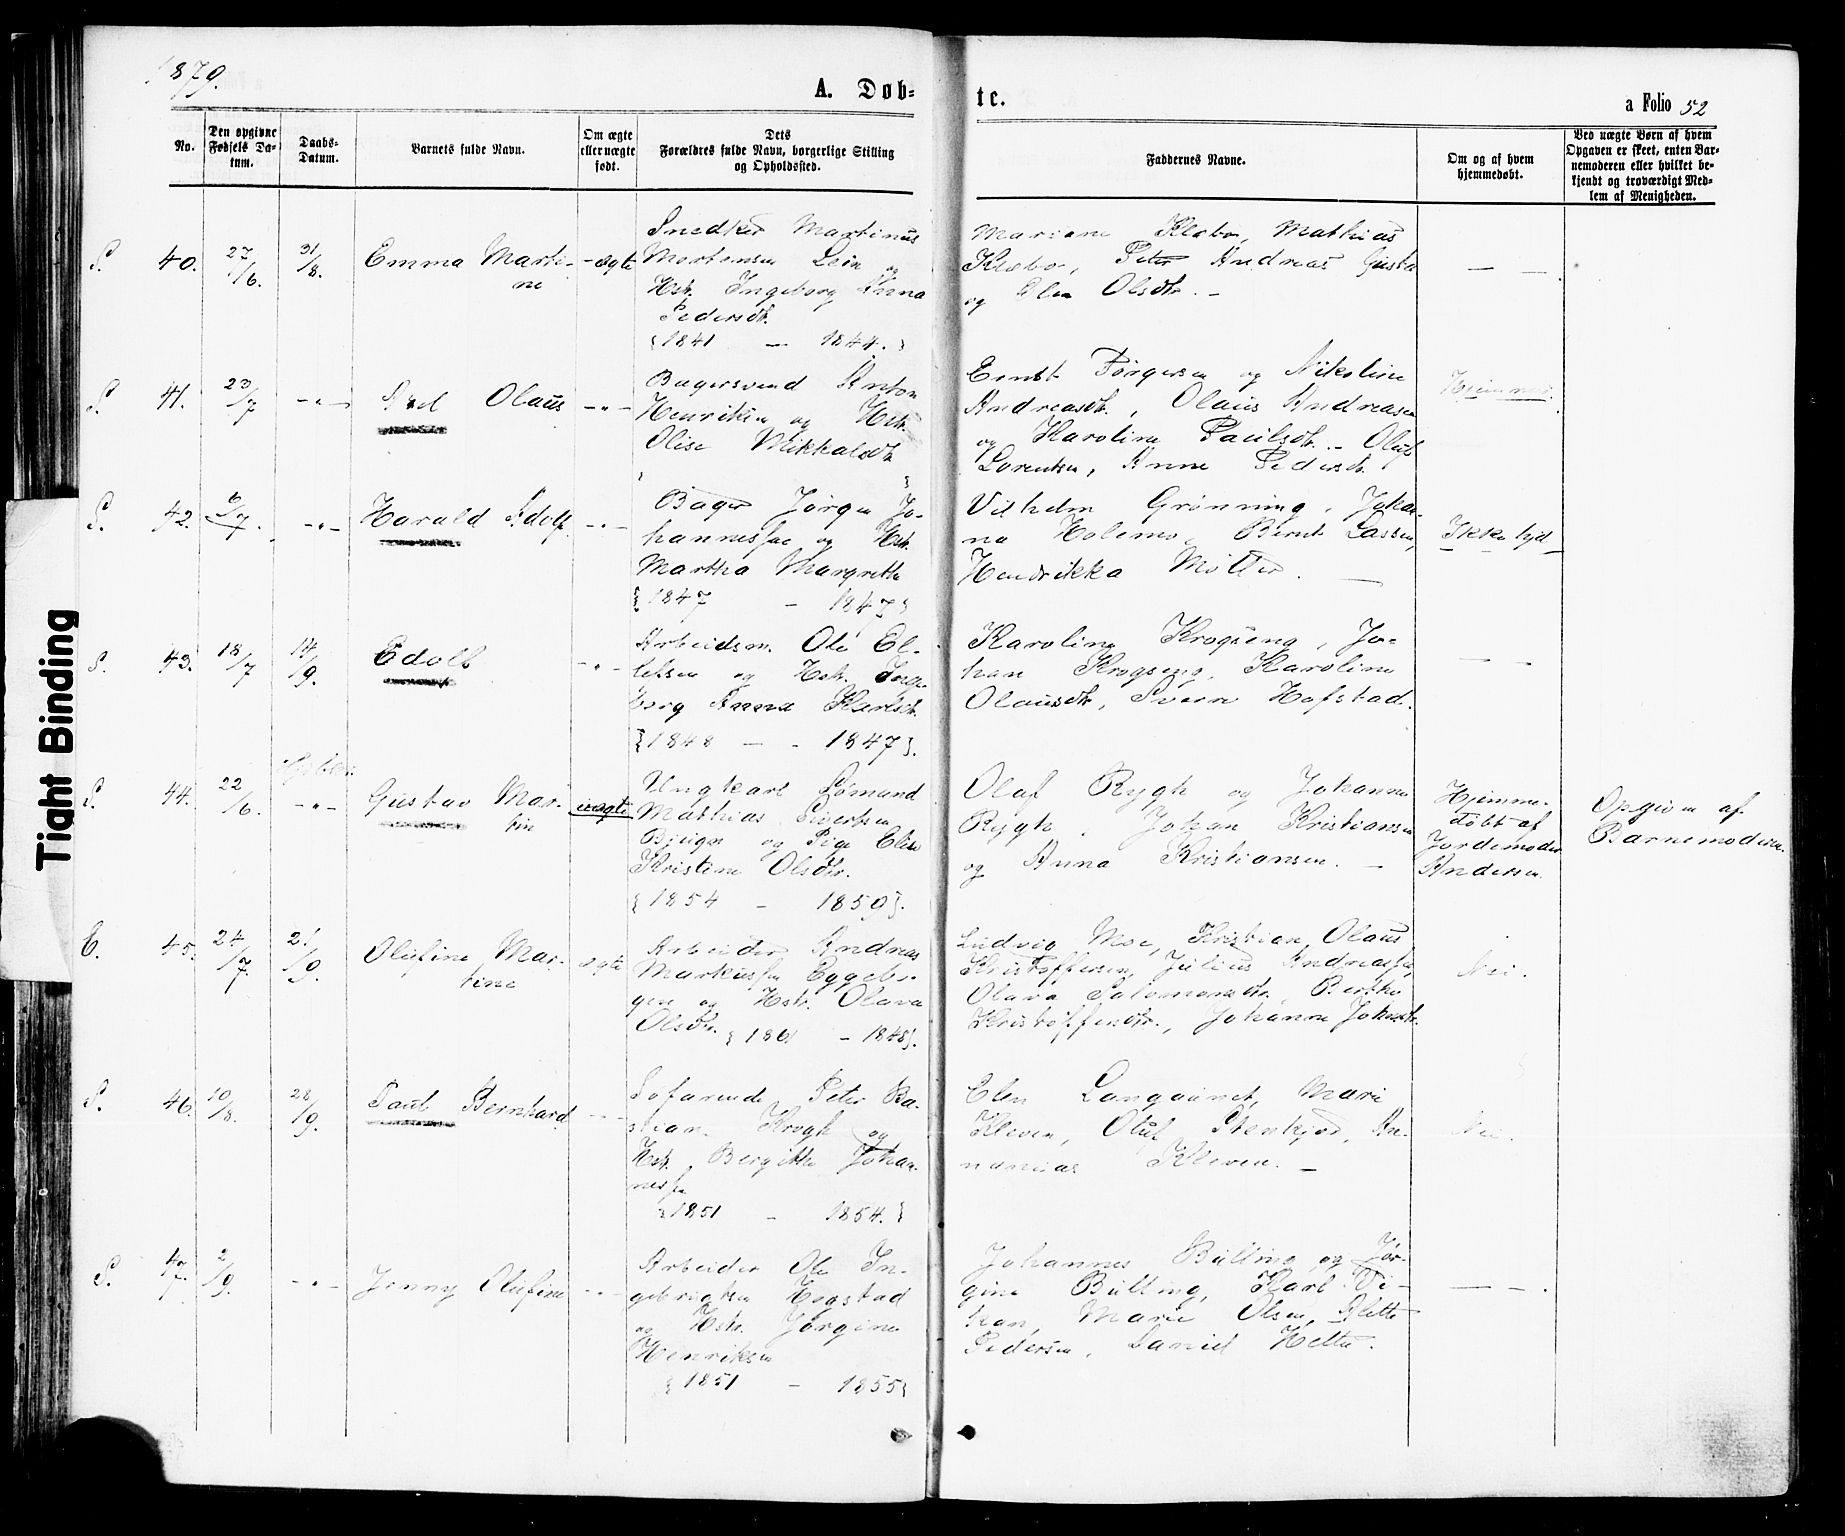 1879.
A. Døb=
te.
a Folio 52
No.
Den opgivne
Fødsels Da-
tum.
Daabs-
Datum.
Barnets fulde Navn.
Om ægte
eller uægte
født.
Dets
Forældres fulde Navn, borgerlige Stilling
og Opholdssted.
Faddernes Navne.
Om og af hvem
hjemmedøbt.
Ved uægte Børn af hvem
Opgaven er skeet, enten Bar-
nemoderen eller hvilket be-
kjendt og troværdigt Med-
lem af Menigheden.
S. 40. 27/6. 31/8. Emma Marti-
ne
ægte
Snedker Martinus
Mortensen Lein og
Hst. Ingeborg Anna
Pedersdt.
{1841 — 1844.}
Mariane Klæbo, Mathias
Klæbo, Peter Andreas
og Elen Olsdtr. -
— —
S. 41. 23/7 -"- Olaus -"-
Bagersvend Anton
Henriksen og Hst.
Olise Mikkalsdt.
Ernst Jørgensen og Nikoline
Andreasdt., Olaus Andreasen
og Karoline Paulsdt. - Oluf
Lorentsen, Anne Pedersdt.
S. 42. 6/7. -"- Harald Adolf -"-
Bager Jørgen Jo-
hannessen og Hst.
Martha Margrethe
{1847 - 1847}
Vilhelm Grønning, Johan-
na Holemo, Bernt Lassen,
Hendrikka Möller. —
Ikke
S. 43. 18/7 14/9. Edolf -"-
Arbeidsm. Ole El-
lefsen og Hst. Inge-
borg Anna Karlsdt.
{1848 — - 1847}.
Karoline Krogseng, Jo-
han Krogseng, Karoline
Olausdt, Svein Hofstad.
— —
S. 44. 22/6. -"- Gustav Mar-
tin
uægte
Ungkarl Sømund
Mathias Sivertsen
og Pige Elise
Kristine Olsdtr.
{1854 - 1859}.
Olaf Rygh og Johanna
Rygh, Johan Kristiansen
og Anna Kristiansen. —
Hjemme-
døbt af
Jordemoder
Andersen.
Opgivn af
Barnemoderen.
E. 45. 24/7. 21/9. Olufine Mar-
tine
ægte
Arbeider Andreas
Markussen Eggebr-
gen og Hstr. Olava
Olsdtr. {1861 - 1848}.
Ludvig Moe, Kristian Olaus
Kristoffersen, Julius Andreassen,
Olava Salomonsdtr., Berthe
Kristoffersdtr., Johanna Johnsdt.
Nei.
S. 46. 10/8. 28/9. Paul Bernhard
Søfarende Peter Ba-
stian Krogh og
Hst. Bergitte Johan-
nessen
{1851 - 1854.}
Elen Langaunet, Marie
Kleven, Oluf Stenkjær, An-
nanias Kleven. —
Nei.
S. 47. 2/9. -"- Jenny Olufine
Arbeider Ole In-
gebrigtsen Hogstad
og Hstr. Jørgine
Henriksen
{1851 - 1855}
Johannes Bulling og Jør-
gine Bulling, Karl Vi-
kan, Marie Olsen, Alette
Pedersen, Daniel Hette.
— - .
Tight Binding